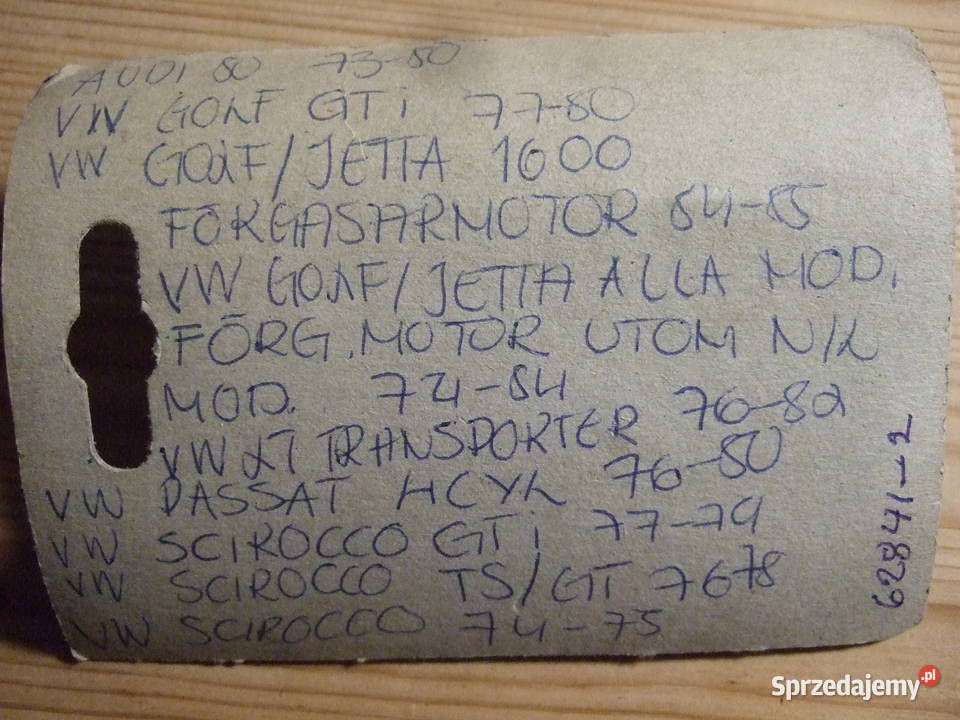 AUDI 80 73-80
VW GOLF GTi 77-80
VW GOLF/JETTA 1600
FÖRGASARMOTOR 84-85
VW GOLF/JETTA ALLA MOD.
FÖRG.MOTOR UTOM N/L
MOD. 74-84
VW LT TRANSPORTER 76-82
VW PASSAT 4CYL 76-80
VW SCIROCCO GTi 77-79
VW SCIROCCO TS/GT 76 78
VW SCIROCCO 74-75
62841-2
Sprzedajemy.pl